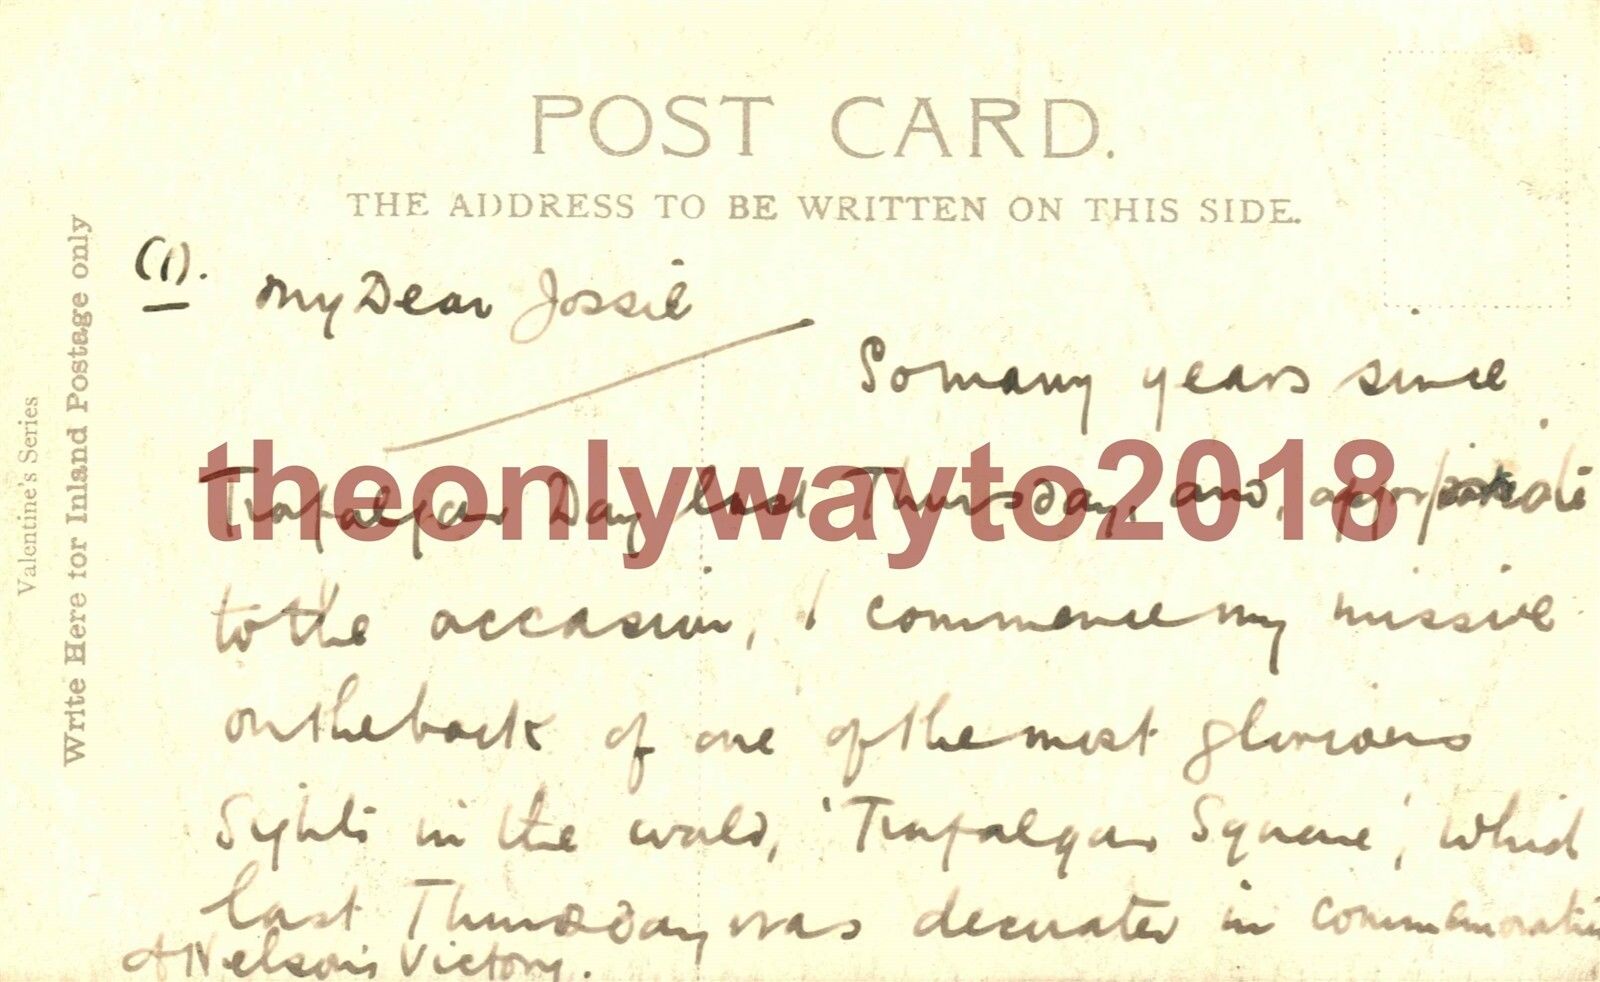 POST CARD.
THE ADDRESS TO BE WRITTEN ON THIS SIDE.
Valentine's Series
Write Here for Inland Postage only
(1). My Dear Jossie
So many years since
Trafalgar Day last Thursday, and, appropriate
to the occasion, I commence my missive
on the back of one of the most glorious
Sights in the world, 'Trafalgar Square', which
last Thursday was decorated in commemoration
of Nelson's Victory.
theonlywayto2018